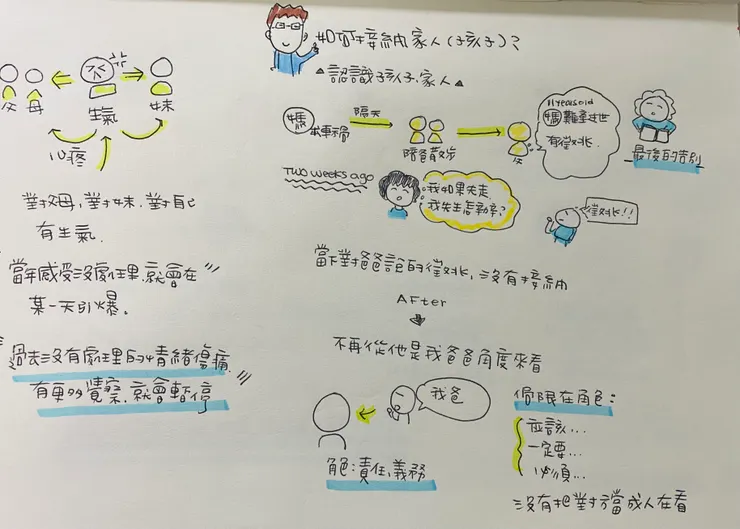 父 母
生氣
妹
心疼
對父母,對妹.對自己
有生氣.
當年感受沒處理.就會在〃
某一天引爆。
過去沒有處理的情緒傷痛
有更多覺察.就會暫停〃
如何接納家人(孩子)?
▲認識孩子.家人▲
媽
隔天
陪爸散步
父
11 years old
媽難產過世
有徵兆.
最後的告別
Two weeks ago
我如果先走
我先生怎麼辦?
徵兆!!
當下對爸爸說的徵兆,沒有接納
After
不再從他是我爸爸角度來看
我爸
角色:責任.義務
侷限在角色:
應該...
一定要...
必須...
沒有把對方當成人在看